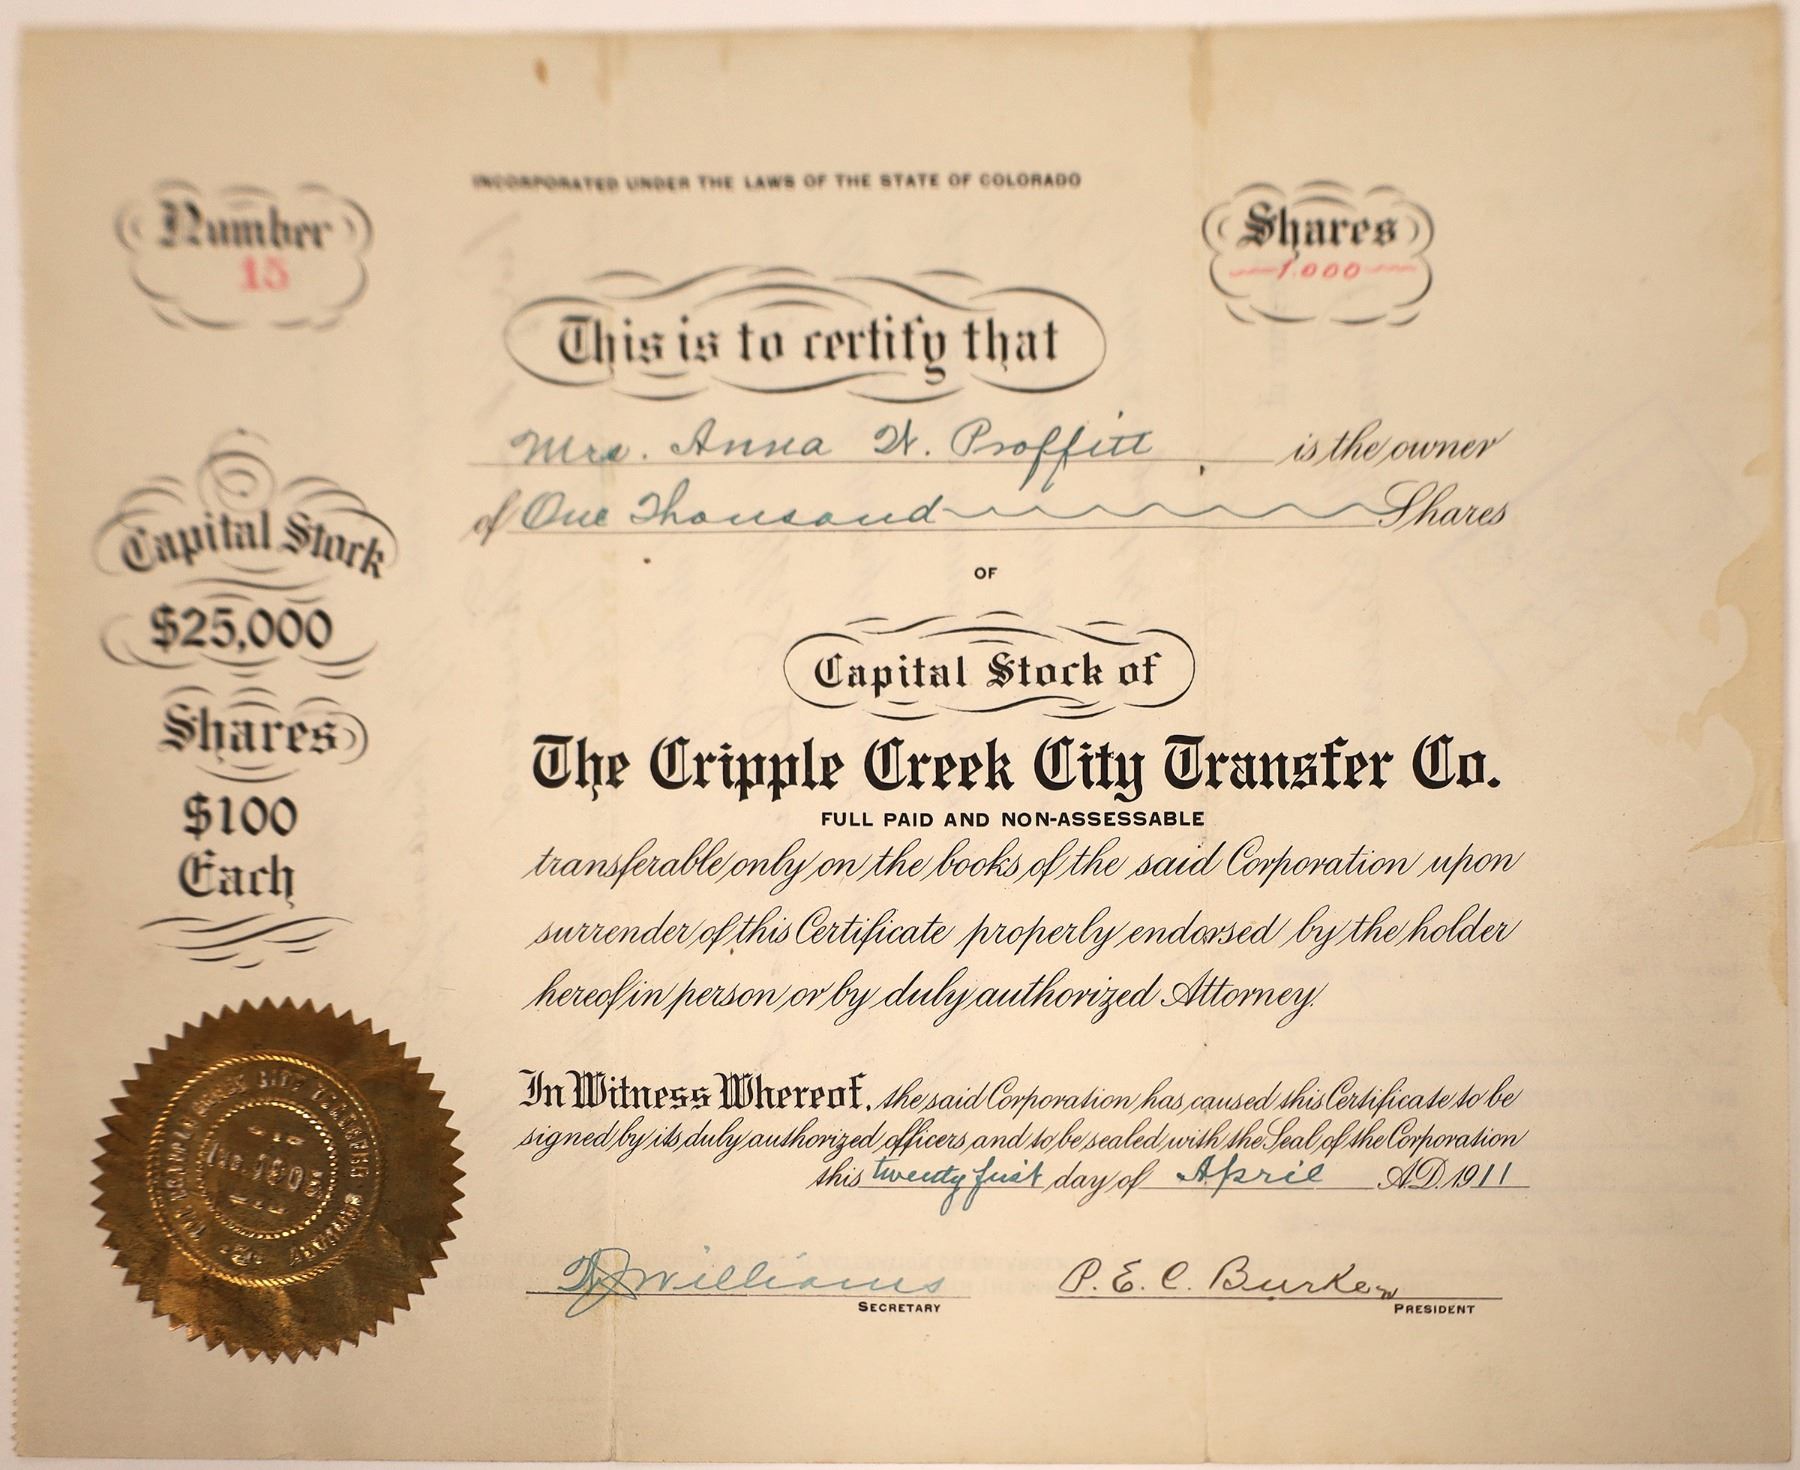 INCORPORATED UNDER THE LAWS OF THE STATE OF COLORADO
Number
15
Shares
1.000
This is to certify that
Mrs. Anna W. Proffitt is the owner
of One Thousand Shares
OF
Capital Stock of
The Cripple Creek City Transfer Co.
FULL PAID AND NON-ASSESSABLE
transferable only on the books of the said Corporation upon
surrender of this Certificate properly endorsed by the holder
hereof in person or by duly authorized Attorney.
In Witness Whereof, the said Corporation has caused this Certificate to be
signed by its duly authorized officers and to be sealed with the Seal of the Corporation
this twenty first day of April A.D. 1911
Williams
SECRETARY
P. E. C. Burke
PRESIDENT
Capital Stock
$25,000
Shares
$100
Each
CREEK CITY TRANSFER